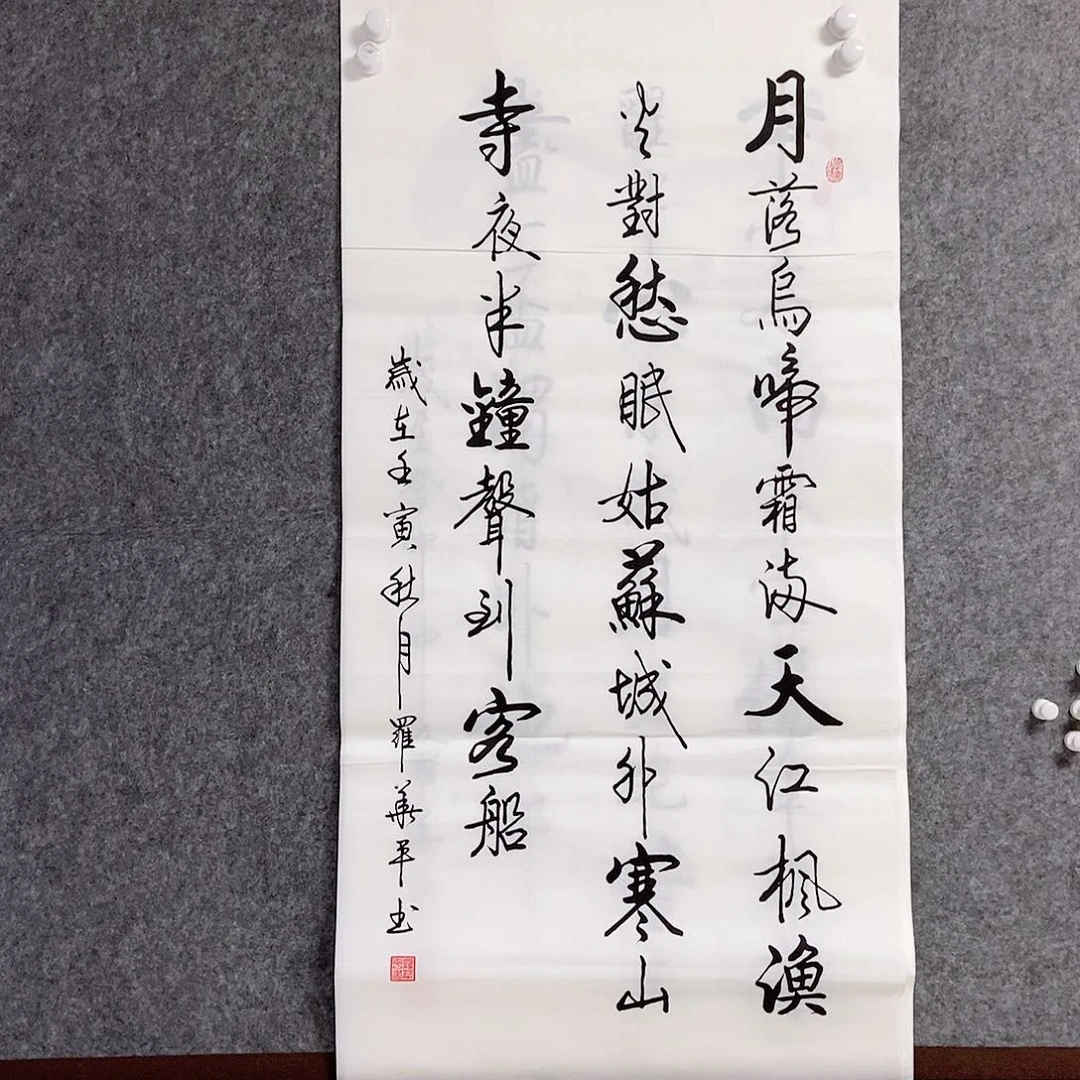 月落烏啼霜満天江楓漁
火對愁眠姑蘇城外寒山
寺夜半鐘聲到客船
歲在壬寅秋月羅華平書